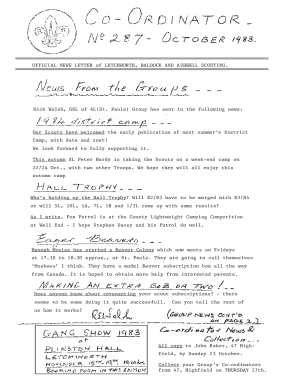 CO-ORDINATOR.
Nº 287 - OCTOBER 1983.
OFFICIAL NEWS LETTER of LETCHWORTH, BALDOCK AND ASHWELL SCOUTING.
News From the Groups ---
Dick Walsh, GSL of 4L(St. Pauls) Group has sent in the following news:
1984 district camp ---
Our Scouts have welcomed the early publication of next summer's District
Camp, with date and cost!
We look forward to fully supporting it.
This autumn SL Peter Hardy is taking the Scouts on a week-end camp on
22/24 Oct., with two other Troops. We hope they will enjoy this
autumn camp
HALL TROPHY. ---
Who's holding up the Hall Trophy? Will 82/83 have to be merged with 83/84
or will 3L, 10L, 4L, 7L, 1B and 1/3L come up with some results?
As I write, Fox Patrol is at the County Lightweight Camping Competition
at Well End - I hope Stephen Dacey and his Patrol do well.
Eager Beavers ---
Hannah Bowles has started a Beaver Colony which now meets on Fridays
at 17.30 to 18.30 approx., at St. Pauls. They are going to call themselves
I have a model Beaver subscription box all the way
from Canada. It is hoped to obtain more help from interested parents.
MAKING AN EXTRA BOB OR TWO! --
Does anyone know about covenanting your scout subscriptions? - there
seems to be some doing it quite successfully. Can you tell the rest of
us how it works?
(GROUP NEWS CONT'D
ON PAGE 2)
GANG SHOW 1983
AT
PLINSTON HALL
LETCHWORTH
NOVEMBER 15th-19th
BOOKING FORM IN THIS EDITION
Co-ordinator News
Collection...
All copy to John Baker, 47 High-
field, by Sunday 23 October.
Collect your Group's Co-ordinators
from 47, Highfield on THURSDAY 27th.